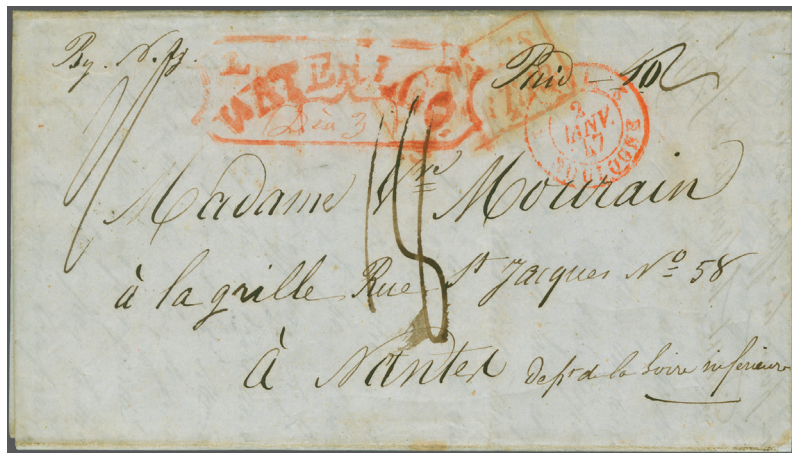 By. N.
Paid - 10
WATERLOO
Dec 3
PAID
2
JANV.
47
BOULOGNE
Madame Vve Mourain
à la grille Rue St Jacques No 58
à Nantes dept de la Loire inférieure